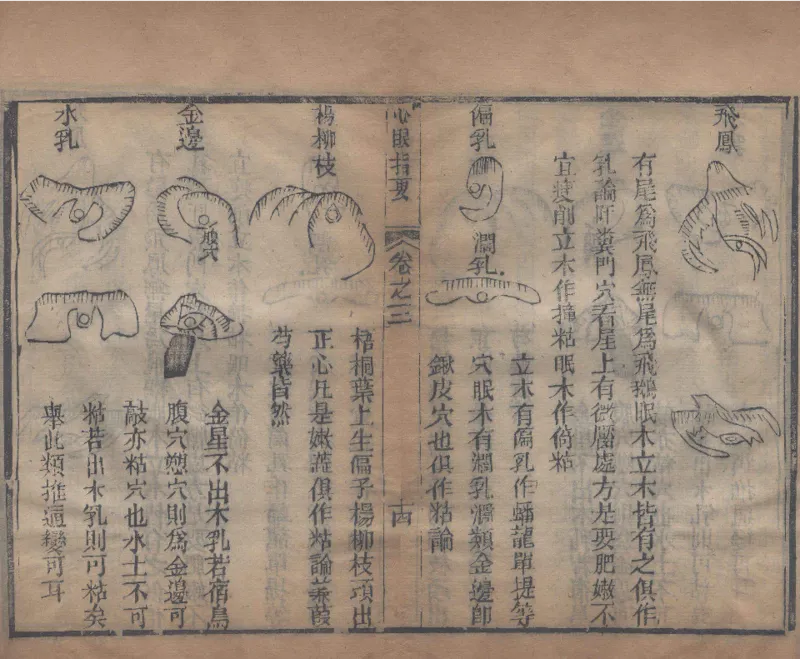 飛鳳
有尾爲飛鳳無尾爲飛鵝眠木立木皆有之俱作
乳論阡糞門穴看屋上有微靨處方是要肥嫩不
宜疲削立木作撞粘眠木作倚粘
偏乳
濶乳
立木有偏乳作蟠龍單提等
穴眠木有濶乳濶類金邊卽
鍬皮穴也俱作粘論
心眼指要
卷之三
十四
楊柳枝
梧桐葉上生偏子楊柳枝項出
正心凡是嫩蕋俱作粘論蒹葭
芍藥皆然
金邊
穴
金星不出木乳若宿鳥
腹穴戀穴則爲金邊可
敲亦粘穴也水土不可
水乳
粘若出木乳則可粘矣
舉此類推通變可耳